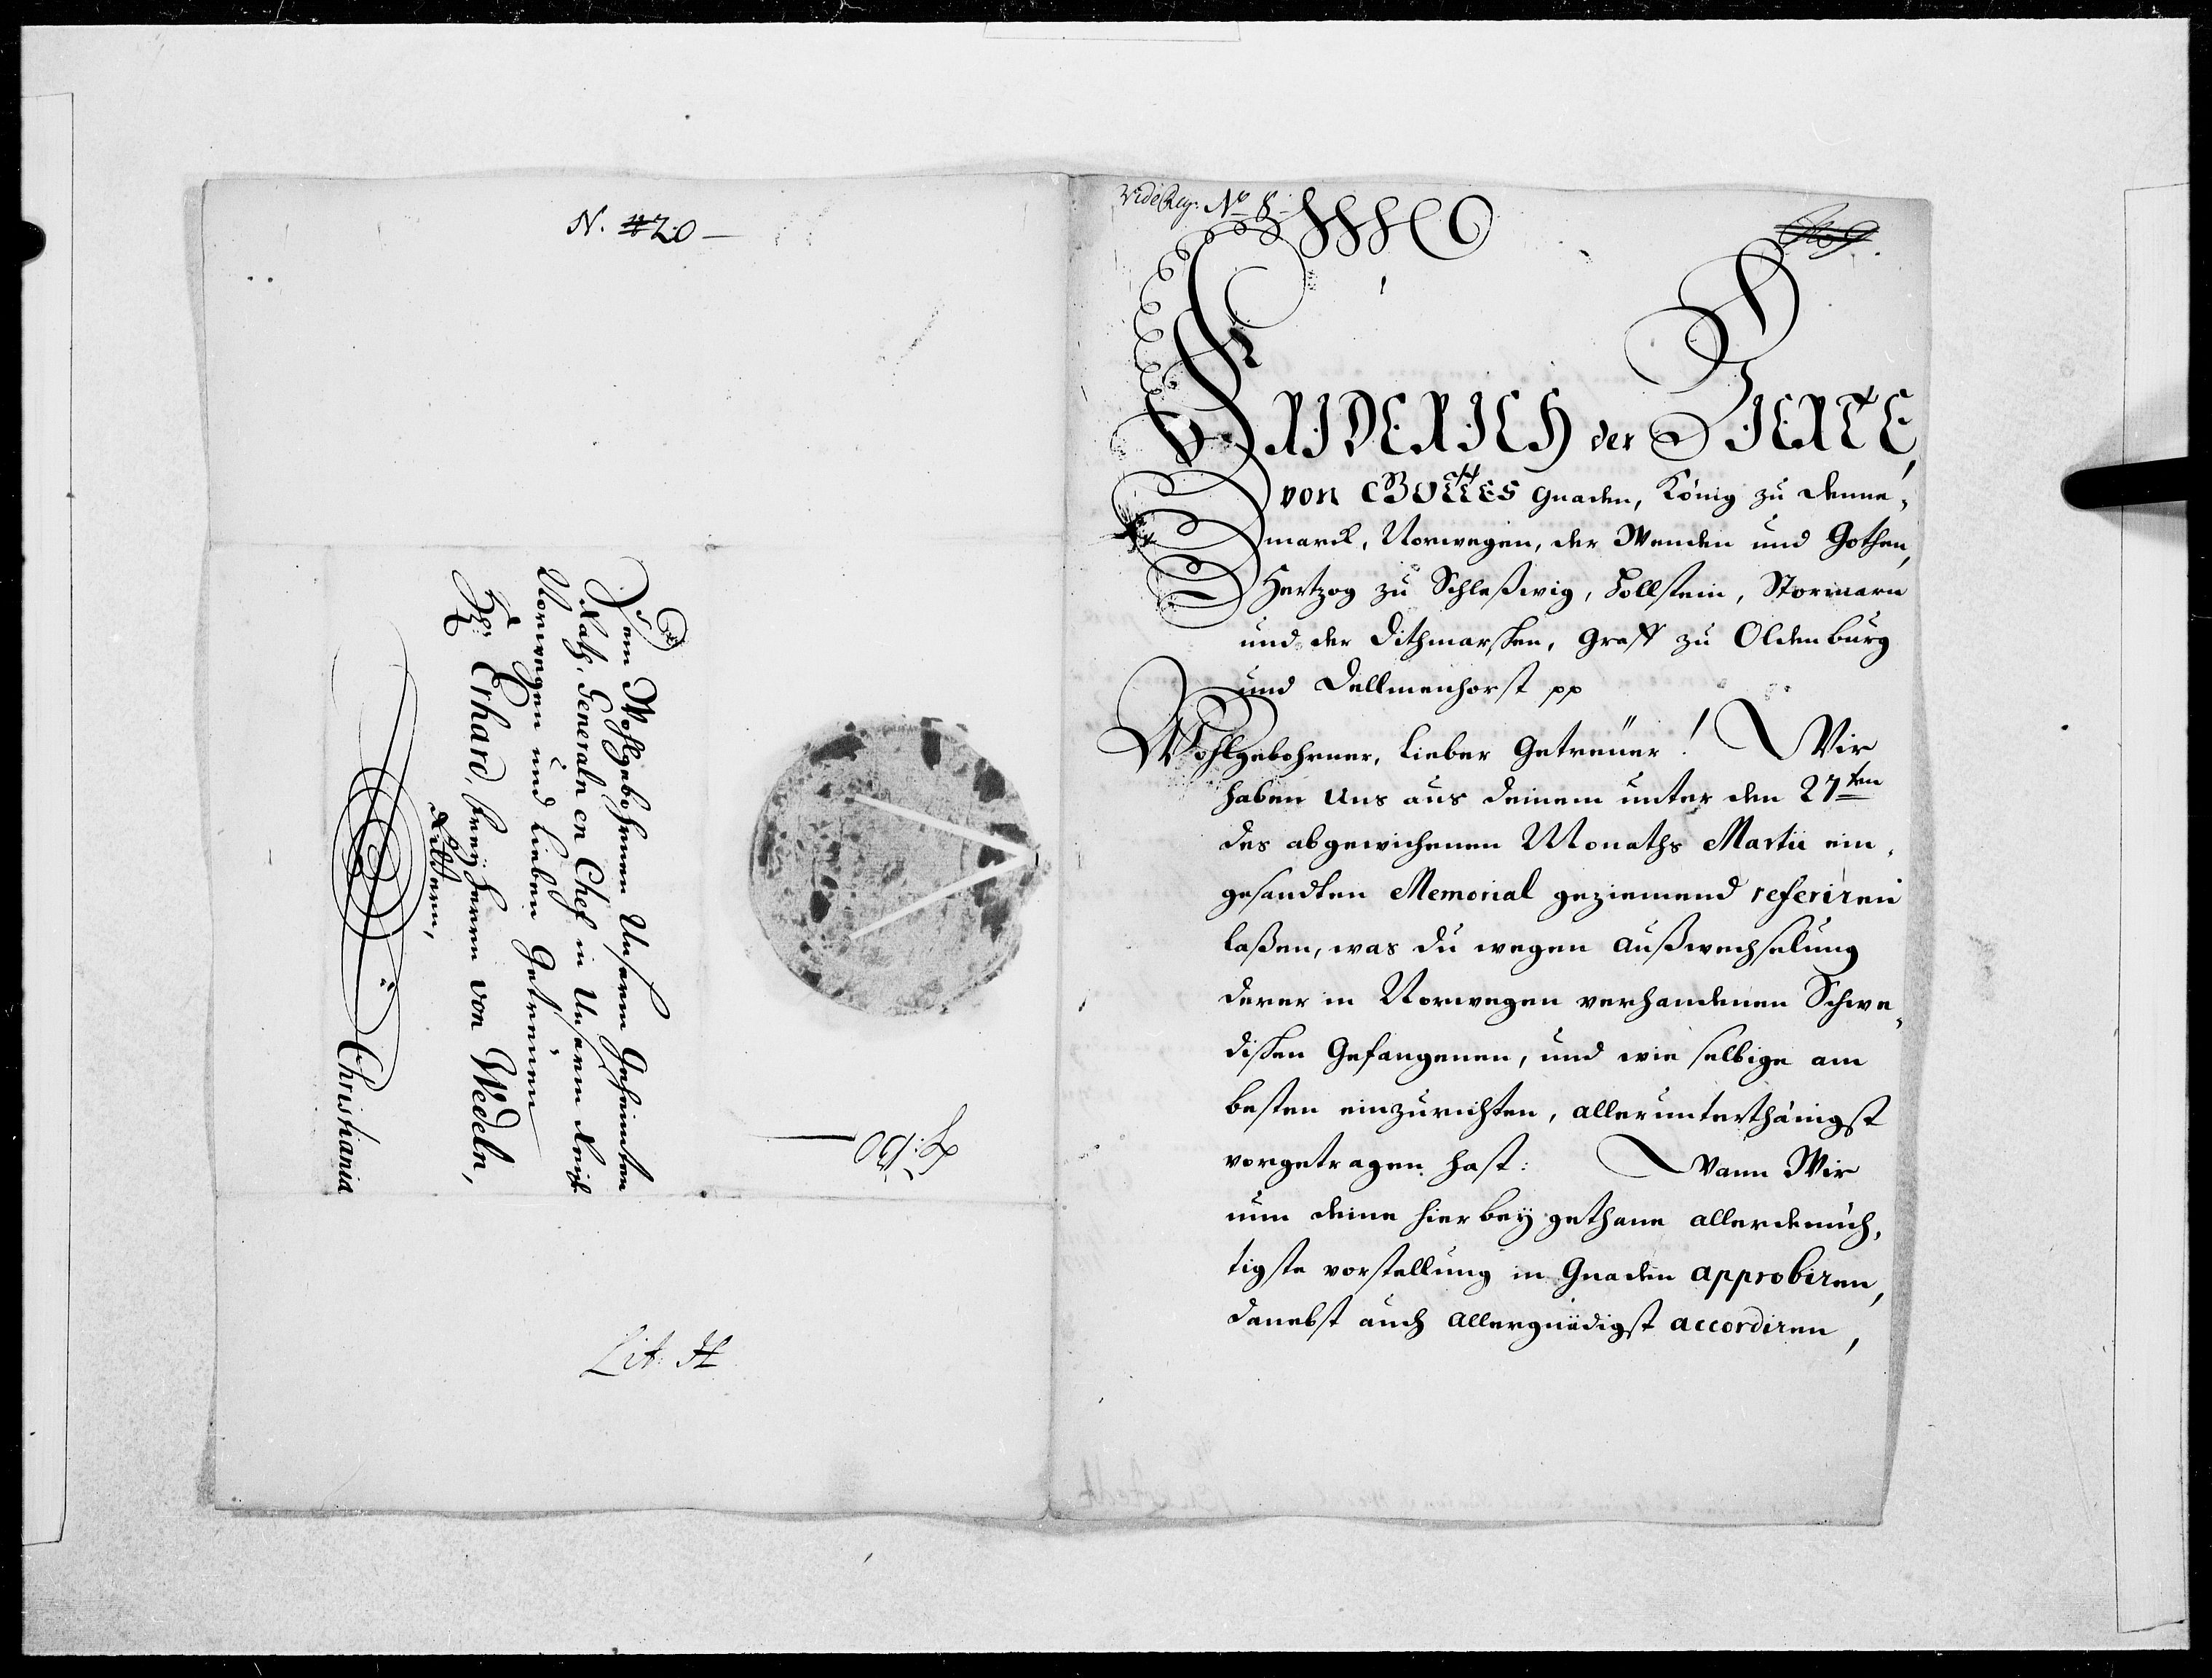 N. 20
Dem Wohlgebohrnen Unserm Geheimten
Rath, Generaln en Chef in Unserm Reich
Norwegen und Lieben Getreüen
Hr: Erhard, Freyherrn von Wedeln,
Rittern,
Christiania
Lit. H
Vide Reg: No 8
FRIDERICH der VIERTE,
von GOTTES Gnaden, König zu Denne,
marck, Norwegen, der Wenden und Gothen,
Hertzog zu Schleßwig, Hollstein, Stormarn
und der Dithmarschen, Graff zu Oldenburg
und Dellmenhorst pp
Wohlgebohrner, Lieber Getreüer! Wir
haben Uns aus deinem unter den 27ten
des abgewichenen Monaths Martii ein,
gesandten Memorial geziemend referiren
laßen, was du wegen Außwechselung
derer in Norwegen verhandenen Schwe,
dischen Gefangenen, und wie selbige am
besten einzurichten, allerunterthänigst
vorgetragen hast: Wann Wir
nun deine hierbey gethane allerdemüh,
tigste vorstellung in Gnaden approbiren,
danebst auch allergnädigst accordiren,